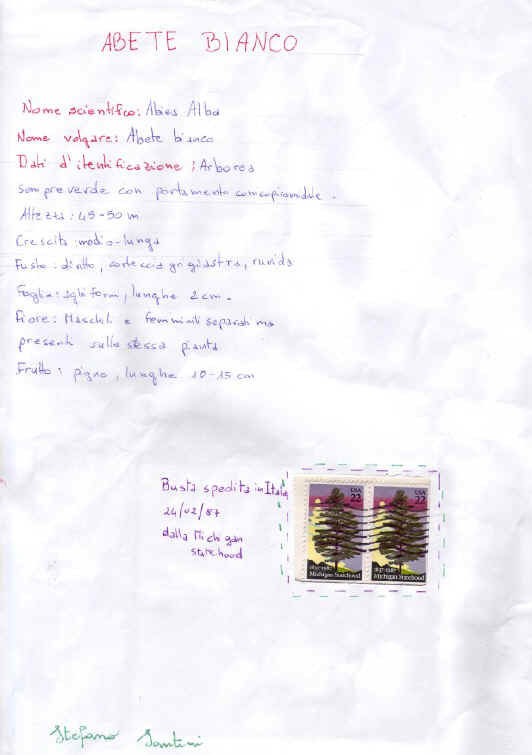 ABETE BIANCO
Nome scientifico: Abies Alba
Nome volgare: Abete bianco
Dati d'itentificazione: Arborea
sempreverde con portamento conicopiramidale.
Altezza: 45-50 m
Crescita medio-lunga
Fusto: diritto, corteccia grigiastra, ruvida
Foglia: aghiformi, lunghe 2 cm.
Fiore: Maschili e femminili separati ma
presenti sulla stessa pianta
Frutto: pigna, lunghe 10-15 cm
Busta spedita in Italia
24/02/87
dalla Michigan
statehood
USA
22
1837-1987
Michigan Statehood
USA
22
1837-1987
Michigan Statehood
Stefano Santini